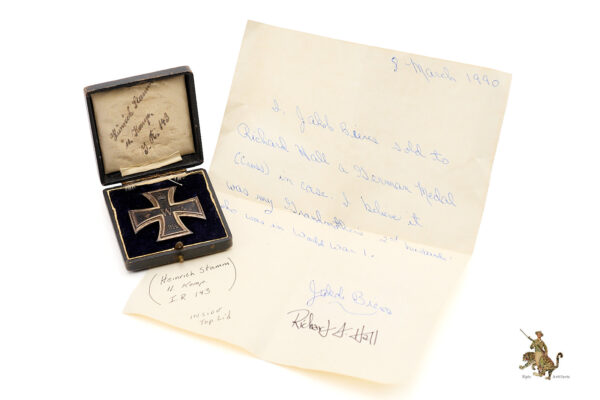 Heinrich Stamm
11 Komp.
J. R. 143
8 March 1990
I, Jakob Biens sold to
Richard Hall a German Medal
(Cross) in case. I believe it
was my Grandmothers 2nd husband.
who was in World War 1.
Jakob Biens
Richard A Hall
(Heinrich Stamm)
11 Komp.
I R 143
INSIDE
Top Lid